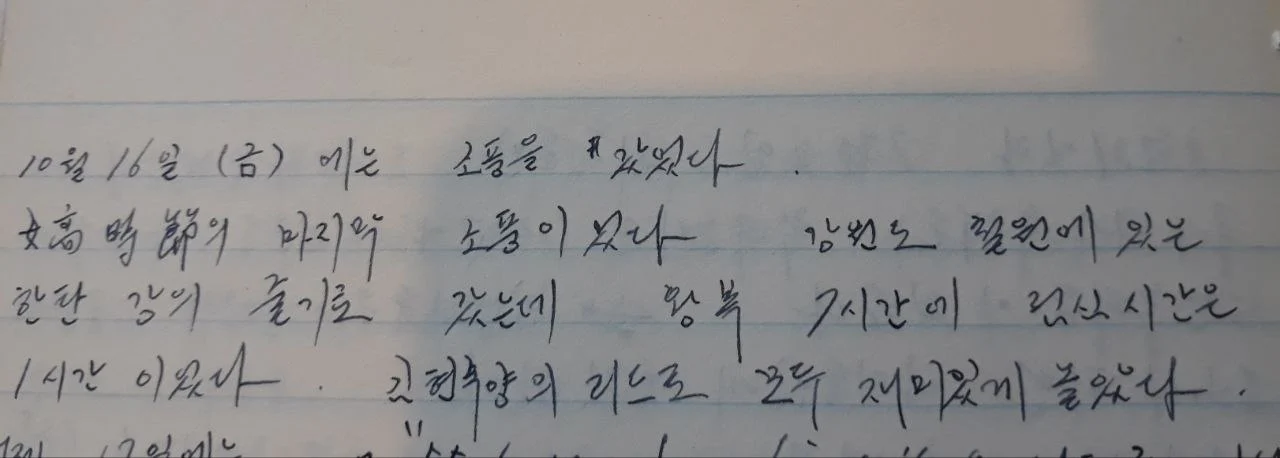 10월 16일 (금) 에는 소풍을 갔었다.
女高時節의 마지막 소풍이었다 강원도 철원에 있는
한탄 강의 줄기로 갔는데 왕복 7시간에 점심시간은
1시간 이었다. 김현숙양의 리드로 모두 재미있게 놀았다.
17일에는